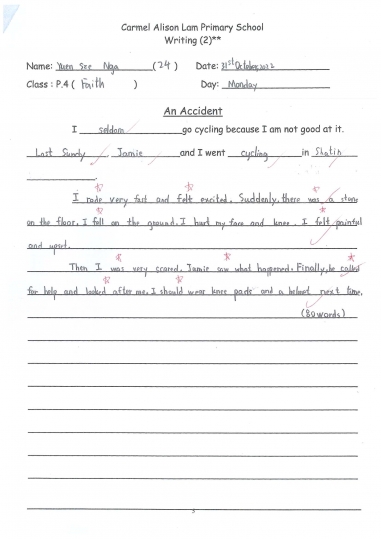 Carmel Alison Lam Primary School
Writing (2)**
Name: Yuen Sze Nga (24) Date: 31st October, 2022
Class : P.4 ( Faith ) Day: Monday
An Accident
I seldom go cycling because I am not good at it.
Last Sunday, Jamie and I went cycling in Shatin
.
I rode very fast and felt excited. Suddenly, there was a stone
on the floor. I fell on the ground. I hurt my face and knee. I felt painful
and upset.
Then I was very scared. Jamie saw what happened. Finally, he called
for help and looked after me. I should wear knee pads and a helmet next time.
(80 words)